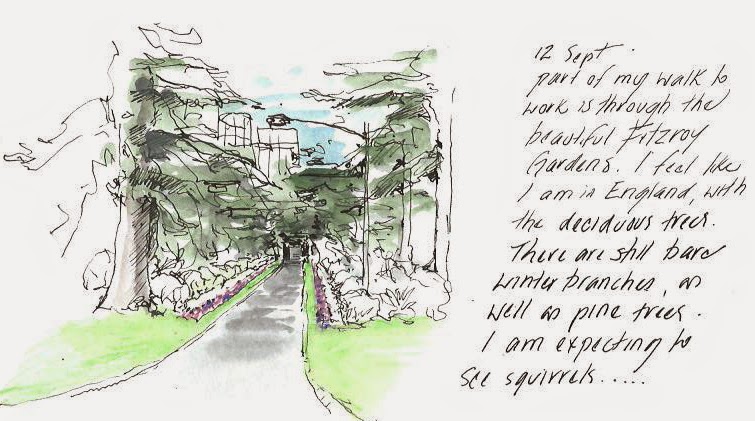 12 Sept.
part of my walk to
work is through the
beautiful Fitzroy
Gardens. I feel like
I am in England, with
the deciduous trees.
There are still bare
winter branches, as
well as pine trees.
I am expecting to
see squirrels.....